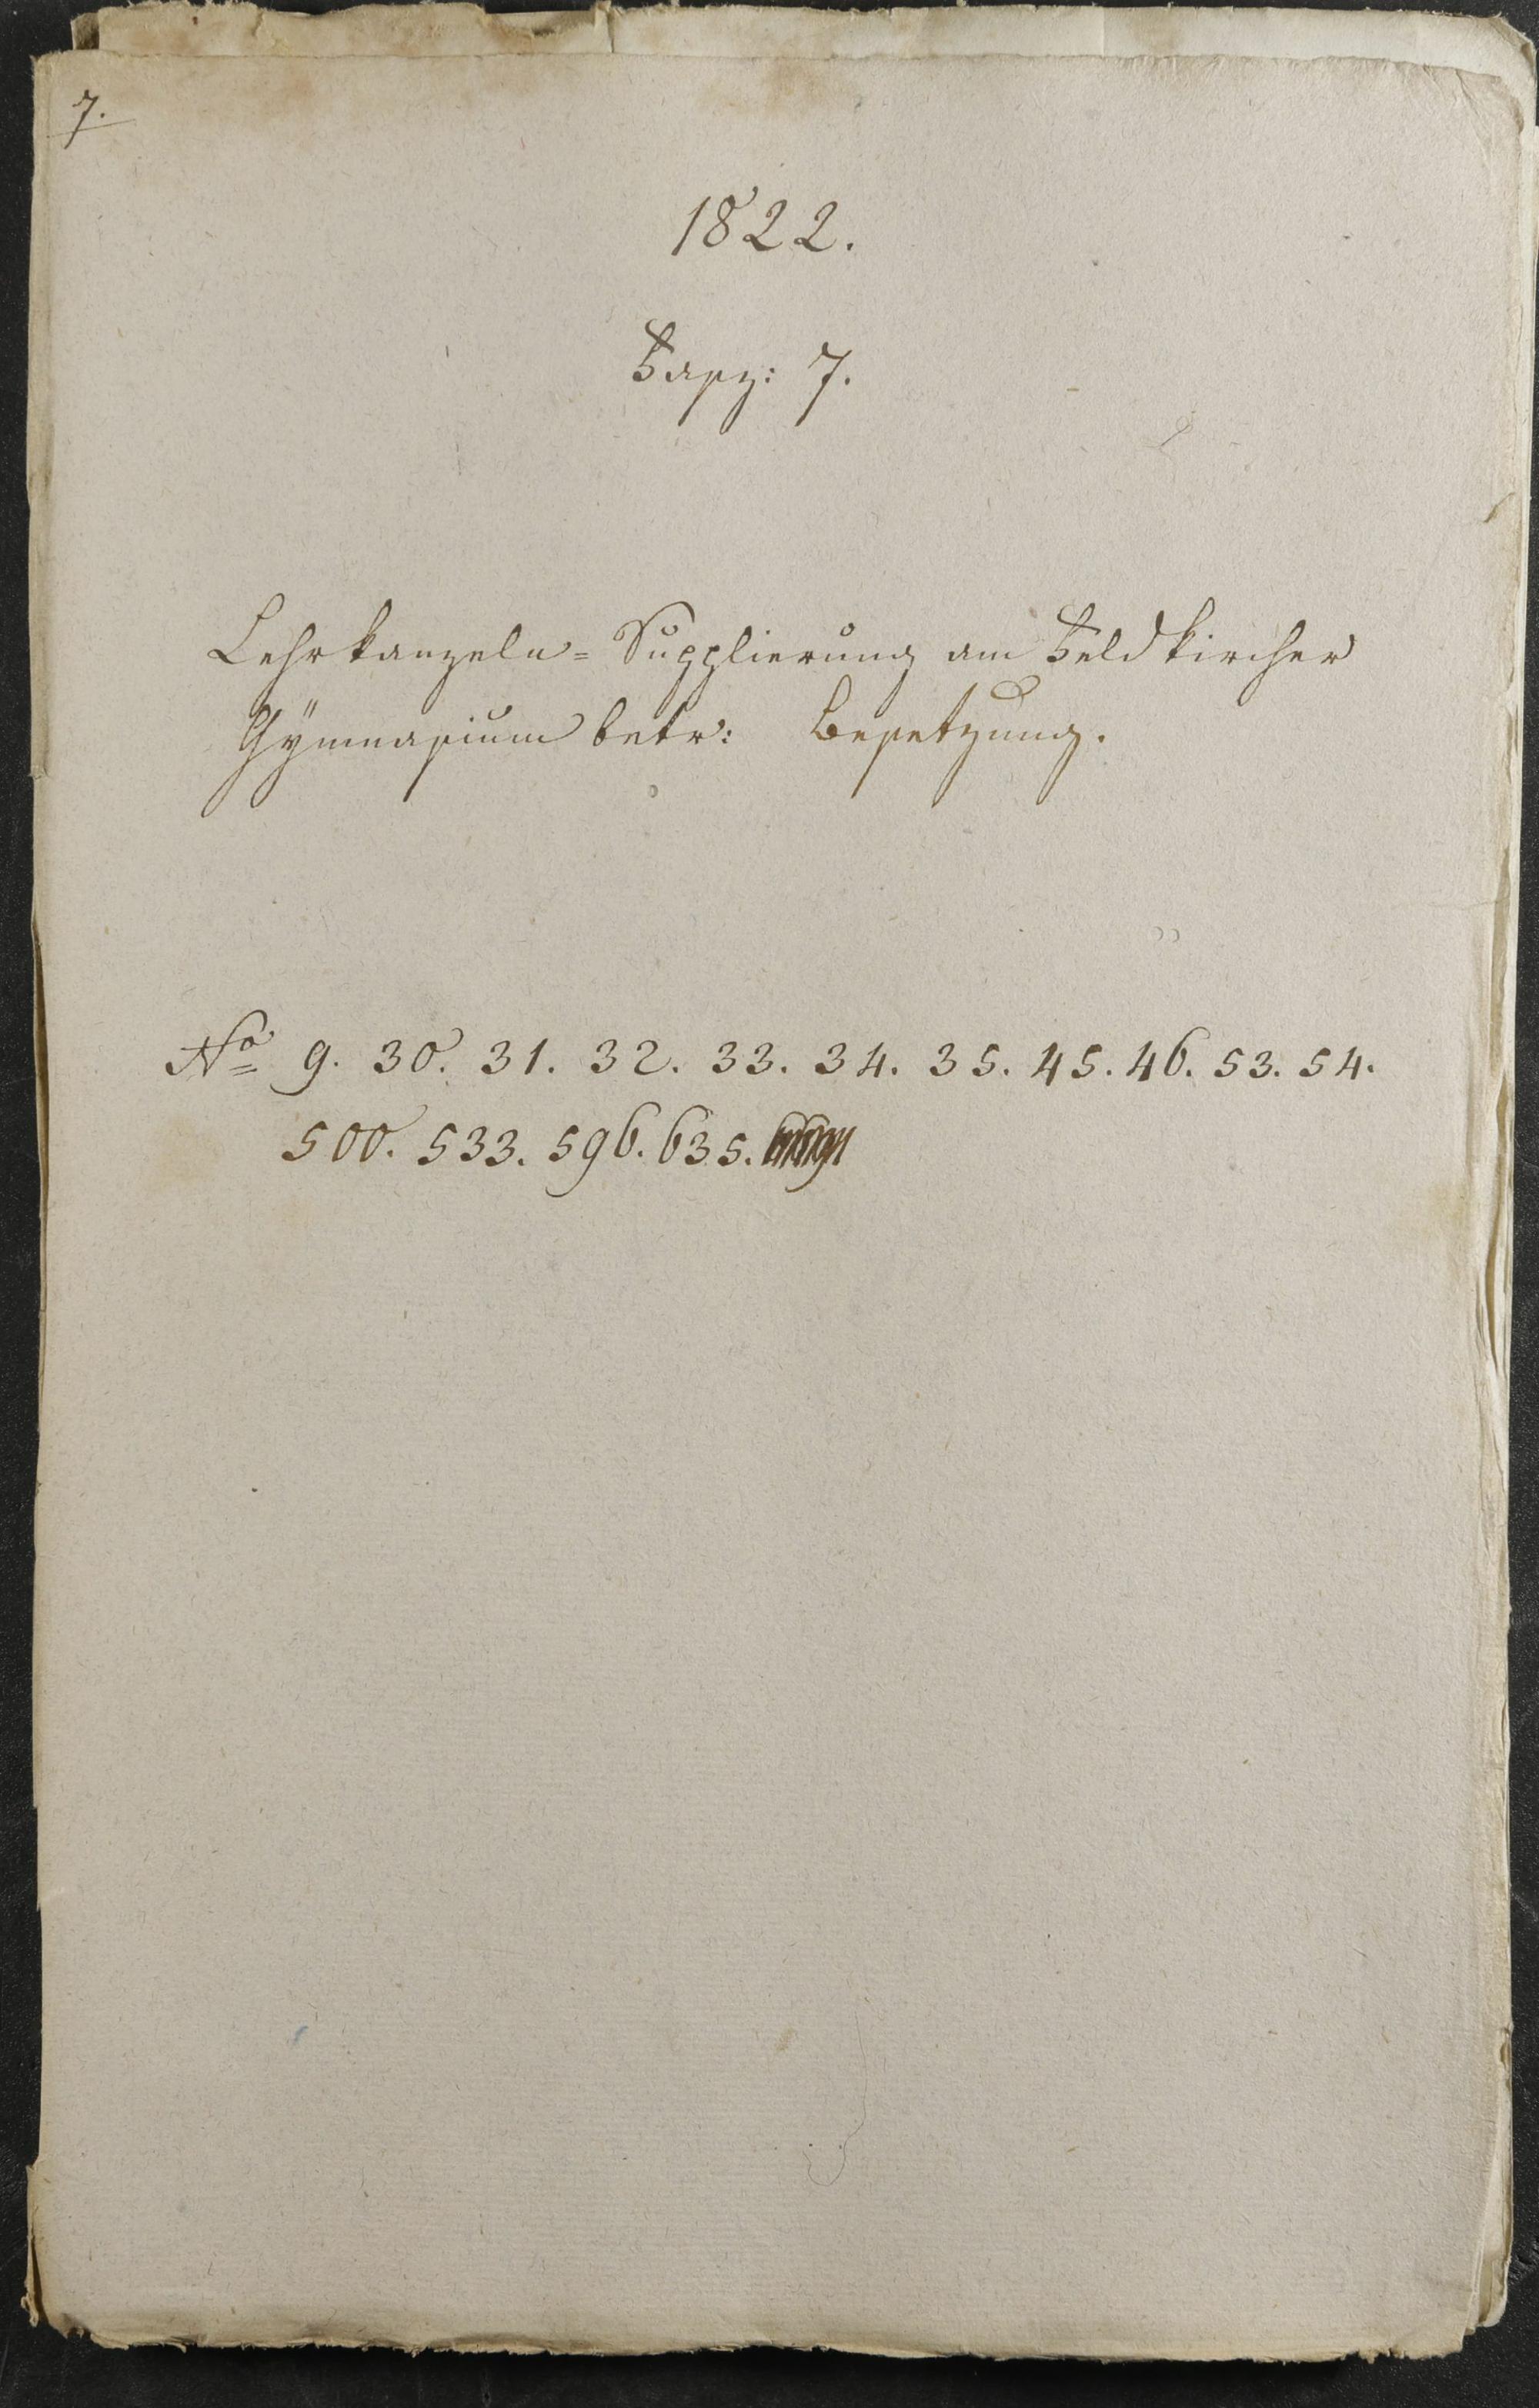 7.
1822.
Fasz: 7.
Lehrkanzeln= Supplierung am Feldkircher
Gÿmnasium betr: Besetzung.
No 9. 30. 31. 32. 33. 34. 35. 45. 46. 53. 54.
500. 533. 596. 635.